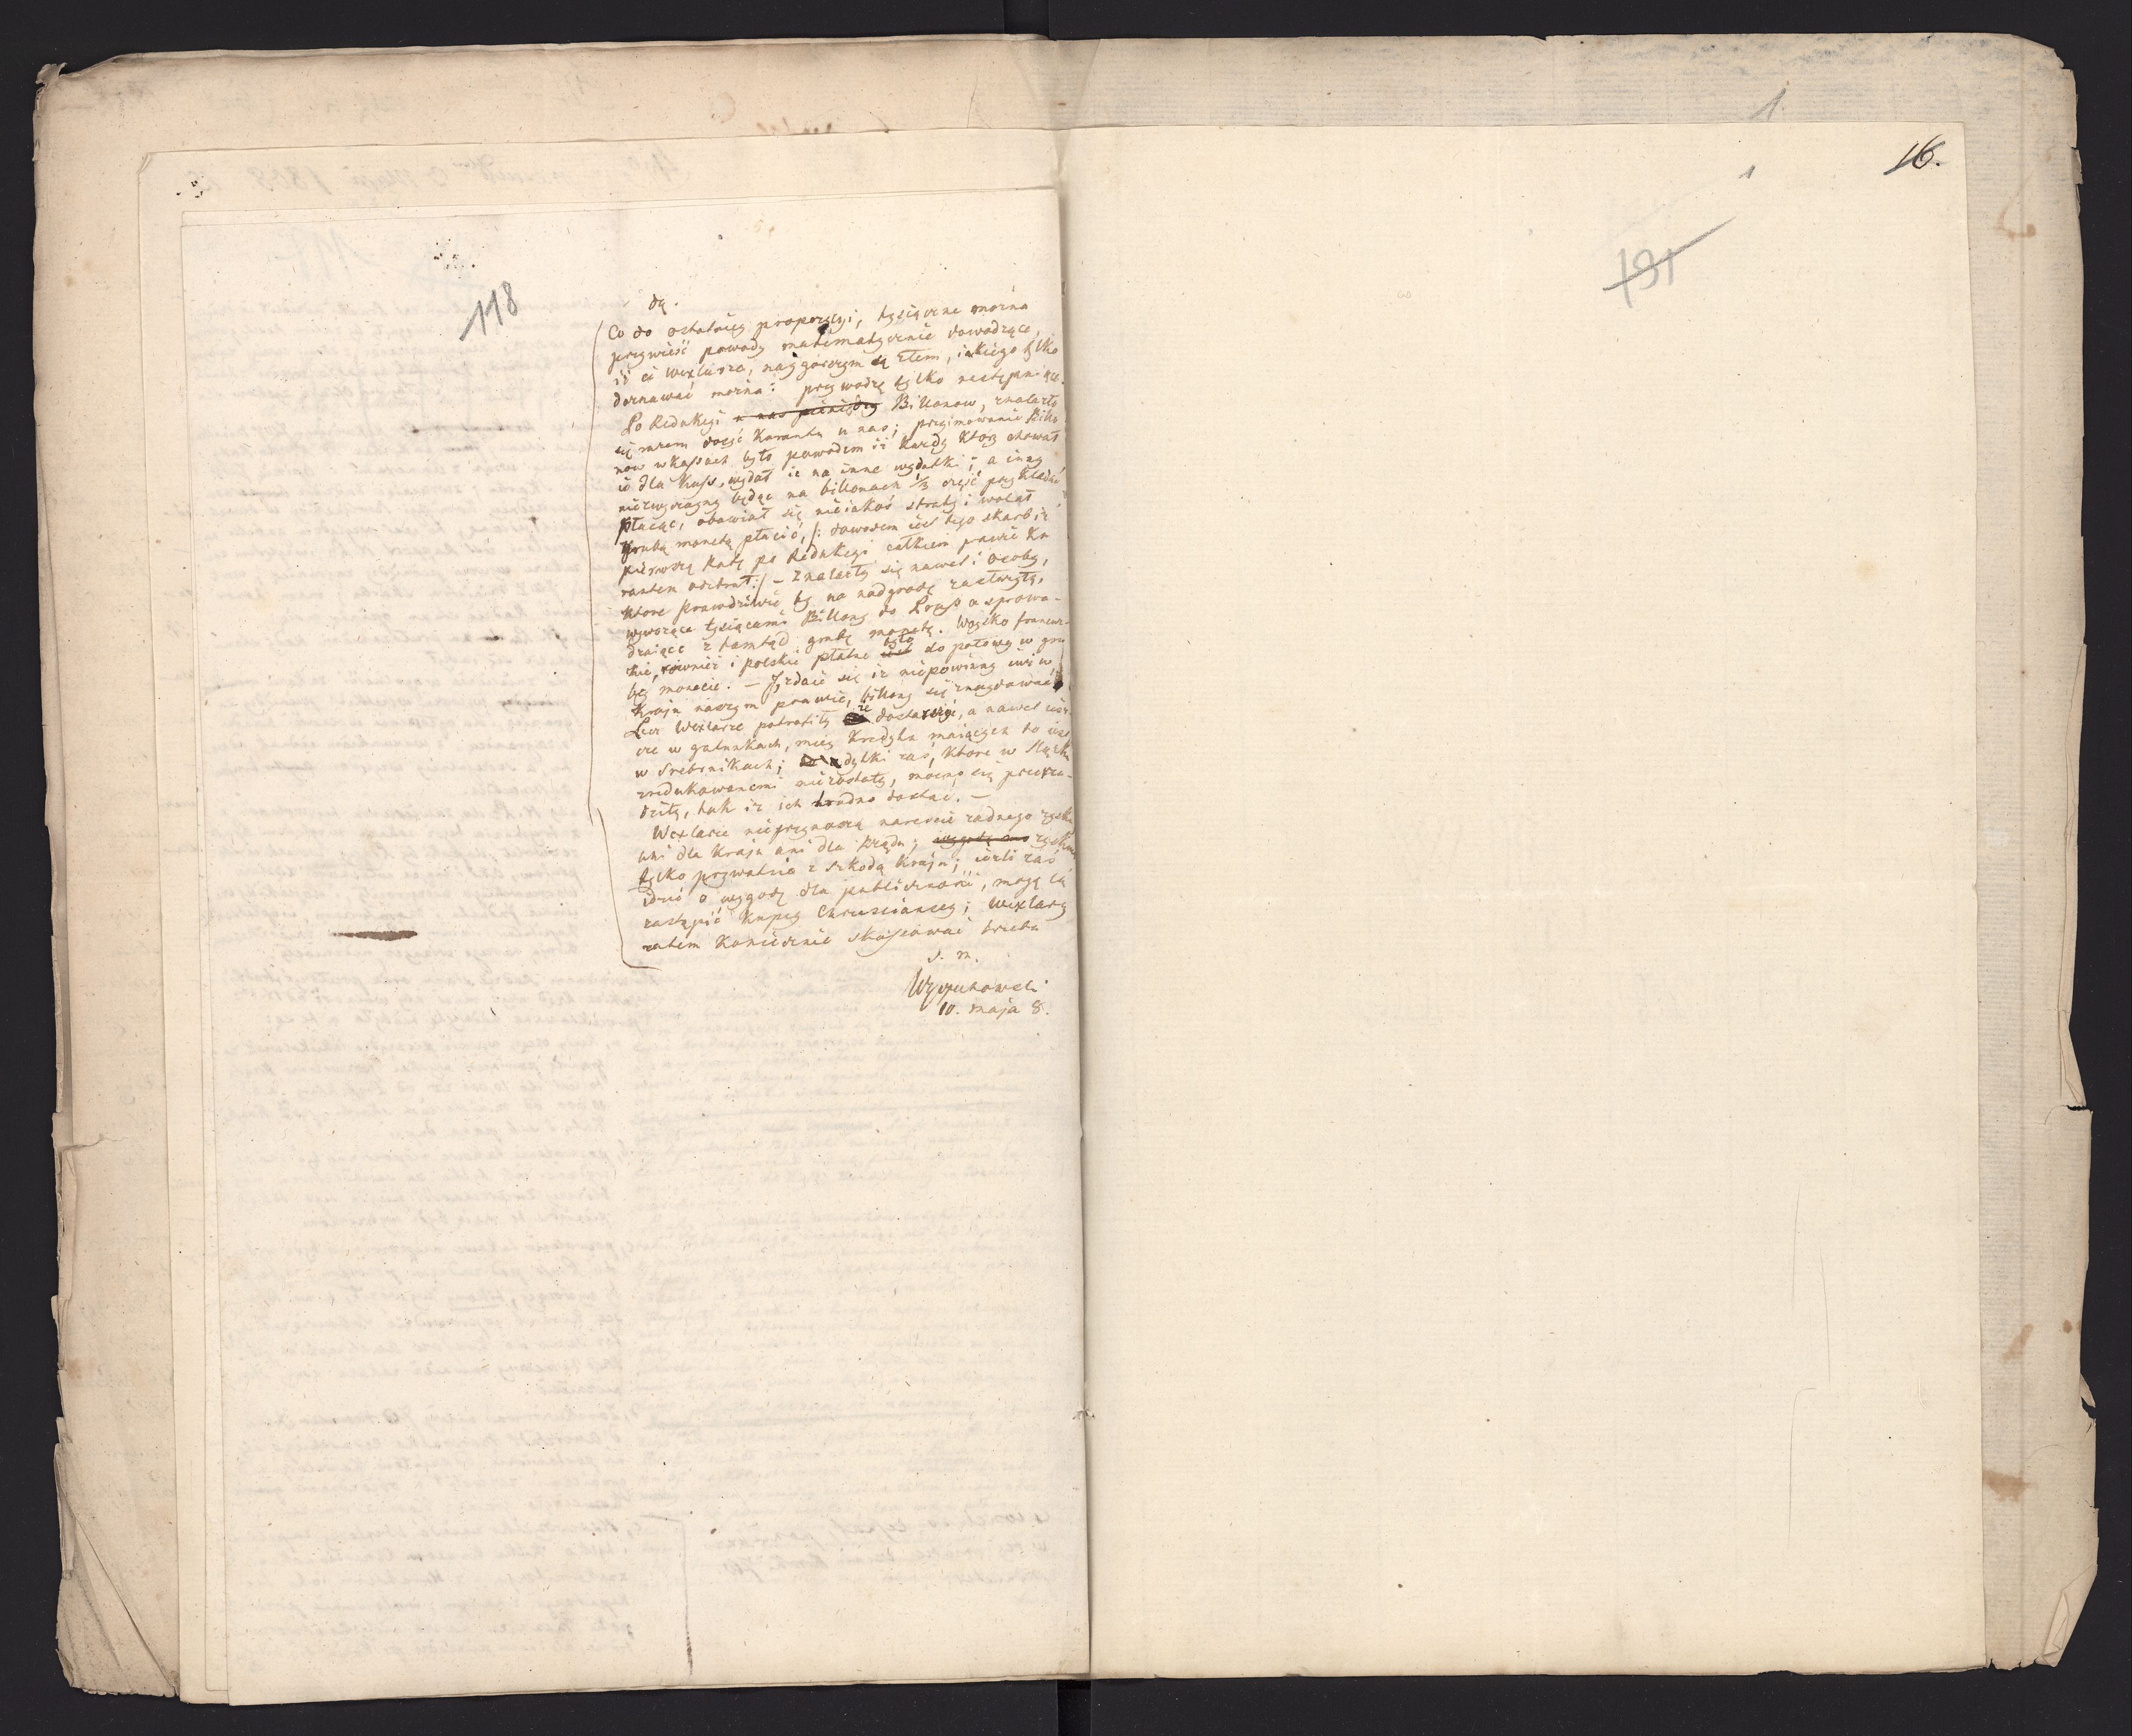 118
dą.
Co do ostatnięy proporcyi, tysiączne można
przywieść powody matematycznie dowodzące,
iż ci wexlarze, nayg̃orszym są złem, iakiego tylko
doznawać można: przywodzę tylko następuiące.
Po Redukcyi u nas pieniędzy Billonow, znalazło
się zaraz dosyć Kurantu u nas; przyimowanie Billo
now w Kassach było powodem iż każdy który chował
ie dla Kass, wydał ie na inne wydatki; a inny
niezwyczayny będąc na billonach 1/3 część przykładać
płacąc, obawiał się nieiakoś straty i wolał
grubą monetą płacić, /: dowodem iest tego skarb iż
pierwszą Ratę po Redukcyi całkiem prawie Ku
rantem odebrał :/ – Znalazły się nawet i osoby,
ktore prawdziwie by na nadgrodę zasłużyły,
wywożące tysiącami Billony do Pruss a sprowa-
dzaiące z tamtąd grubą monetę. Woysko francuz-
kie, rownież i polskie płatne było do połowy w gru
bey monecie. – Zdaie się iż niepowinny iuż w
Kraju naszym prawie, billony się znaydować
Lecz Wexlarze potrafiły ie dostarczyć, a nawet ieszcze
cze w gatunkach, mniey Kredytu maiących to iest
w Srebrnikach; dytki zaś, ktore w Sląsku
zredukowanemi niezostały, mocno się przerze-
dziły, tak iż ich trudno dostać. –
Wexlarze nieprzynoszą nareście żadnego zysku
ani dla Kraju ani dla Rządu; wygodę zysk
tylko prywatnie z szkodą Kraju; ieźli zaś
idzie o wygodę dla publicznosci, mogą ią
zastąpić Kupcy Chrześcianscy; Wexlarzy
zatem Koniecznie skassować trzeba
s. m.
10. maja 8.
16.
1
1
131